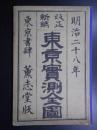 明治二十八年
改正
新編
東京實測全圖
東京書肆 薫志堂版